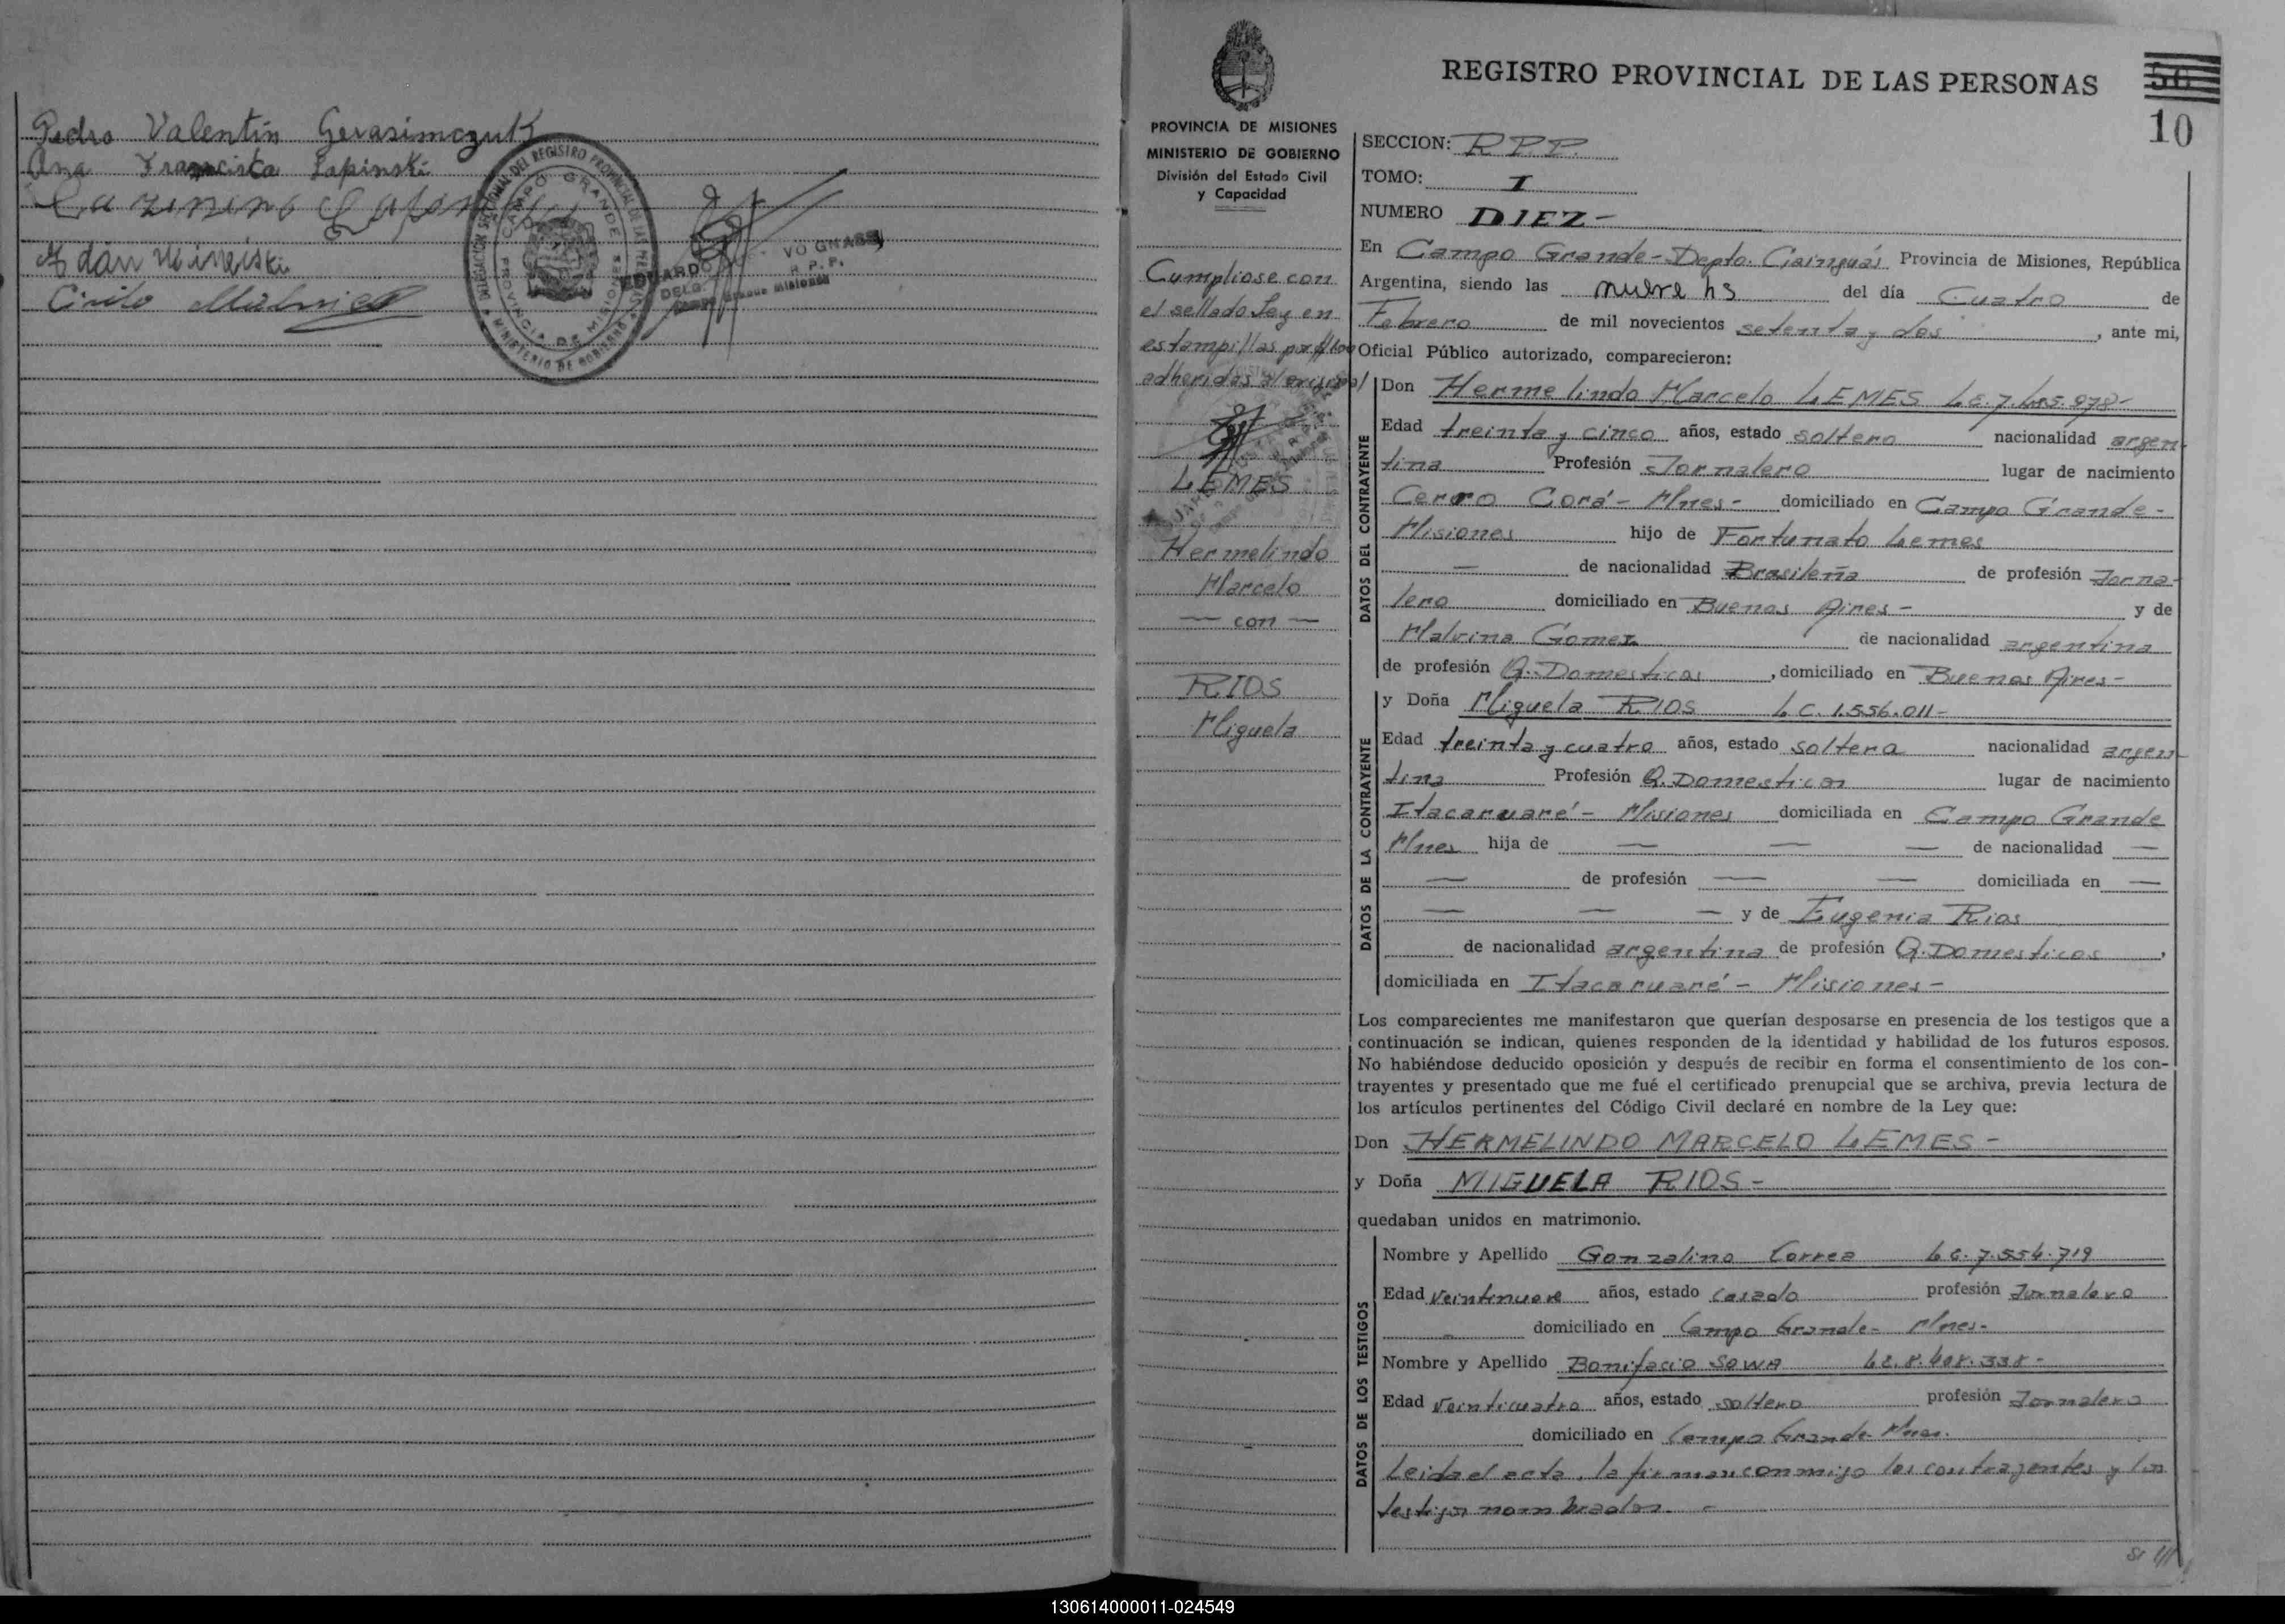 Pedro Valentín Gerasimczuk
Ana Francisca Lapinski
Adán
Cirilo
DELEGACION SECCIONAL DEL REGISTRO PROVINCIAL DE LAS PERSONAS
CAMPO GRANDE
PROVINCIA DE MISIONES
MINISTERIO DE GOBIERNO
R.P.P.
Misiones
REGISTRO PROVINCIAL DE LAS PERSONAS
56
10
PROVINCIA DE MISIONES
MINISTERIO DE GOBIERNO
División del Estado Civil
y Capacidad
Cumpliose con
el sellado Ley en
estampillas por
adheridas al original
LEMES
Hermelindo
Marcelo
— con —
RIOS
Miguela
SECCION: R.P.P.
TOMO: I
NUMERO DIEZ-
En Campo Grande-Depto. Cainguás Provincia de Misiones, República
Argentina, siendo las nueve hs del día Cuatro de
Febrero de mil novecientos setenta y dos, ante mi,
Oficial Público autorizado, comparecieron:
DATOS DEL CONTRAYENTE
Don Hermelindo Marcelo LEMES
Edad treinta y cinco años, estado soltero nacionalidad argen-
tina Profesión Jornalero lugar de nacimiento
Cerro Corá - Mnes- domiciliado en Campo Grande-
Misiones hijo de Fortunato Lemes
— de nacionalidad Brasileña de profesión Jorna-
lero domiciliado en Buenos Aires- y de
Malvina Gomez de nacionalidad argentina
de profesión Q. Domesticos, domiciliado en Buenos Aires-
DATOS DE LA CONTRAYENTE
y Doña Miguela RIOS L.C. 1.556.011-
Edad treinta y cuatro años, estado soltera nacionalidad argen-
tina Profesión Q. Domesticos lugar de nacimiento
Itacaruaré - Misiones domiciliada en Campo Grande
Mnes hija de — — — de nacionalidad —
— de profesión — — domiciliada en —
— — — y de Eugenia Rios
de nacionalidad argentina de profesión Q. Domesticos,
domiciliada en Itacaruaré - Misiones-
Los comparecientes me manifestaron que querían desposarse en presencia de los testigos que a
continuación se indican, quienes responden de la identidad y habilidad de los futuros esposos.
No habiéndose deducido oposición y después de recibir en forma el consentimiento de los con-
trayentes y presentado que me fué el certificado prenupcial que se archiva, previa lectura de
los artículos pertinentes del Código Civil declaré en nombre de la Ley que:
Don HERMELINDO MARCELO LEMES-
y Doña MIGUELA RIOS-
quedaban unidos en matrimonio.
DATOS DE LOS TESTIGOS
Nombre y Apellido Gonzalino Correa L.E. 7.554.719
Edad veintinueve años, estado casado profesión Jornalero
domiciliado en Campo Grande- Mnes-
Nombre y Apellido Bonifacio SOWA L.E. 8.408.338-
Edad veinticuatro años, estado soltero profesión Jornalero
domiciliado en Campo Grande- Mnes.
Leida el acta, la firman conmigo los contrayentes y los
testigos nombrados. -
130614000011-024549